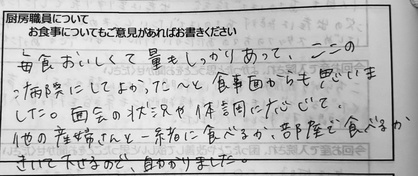 厨房職員について
お食事についてもご意見があればお書きください
毎食おいしくて量もしっかりあって、ここの
病院にしてよかった〜と食事面からも思いま
した。面会の状況や体調に応じて、
他の産婦さんと一緒に食べるか、部屋で食べるか
きいて下さるので、助かりました。